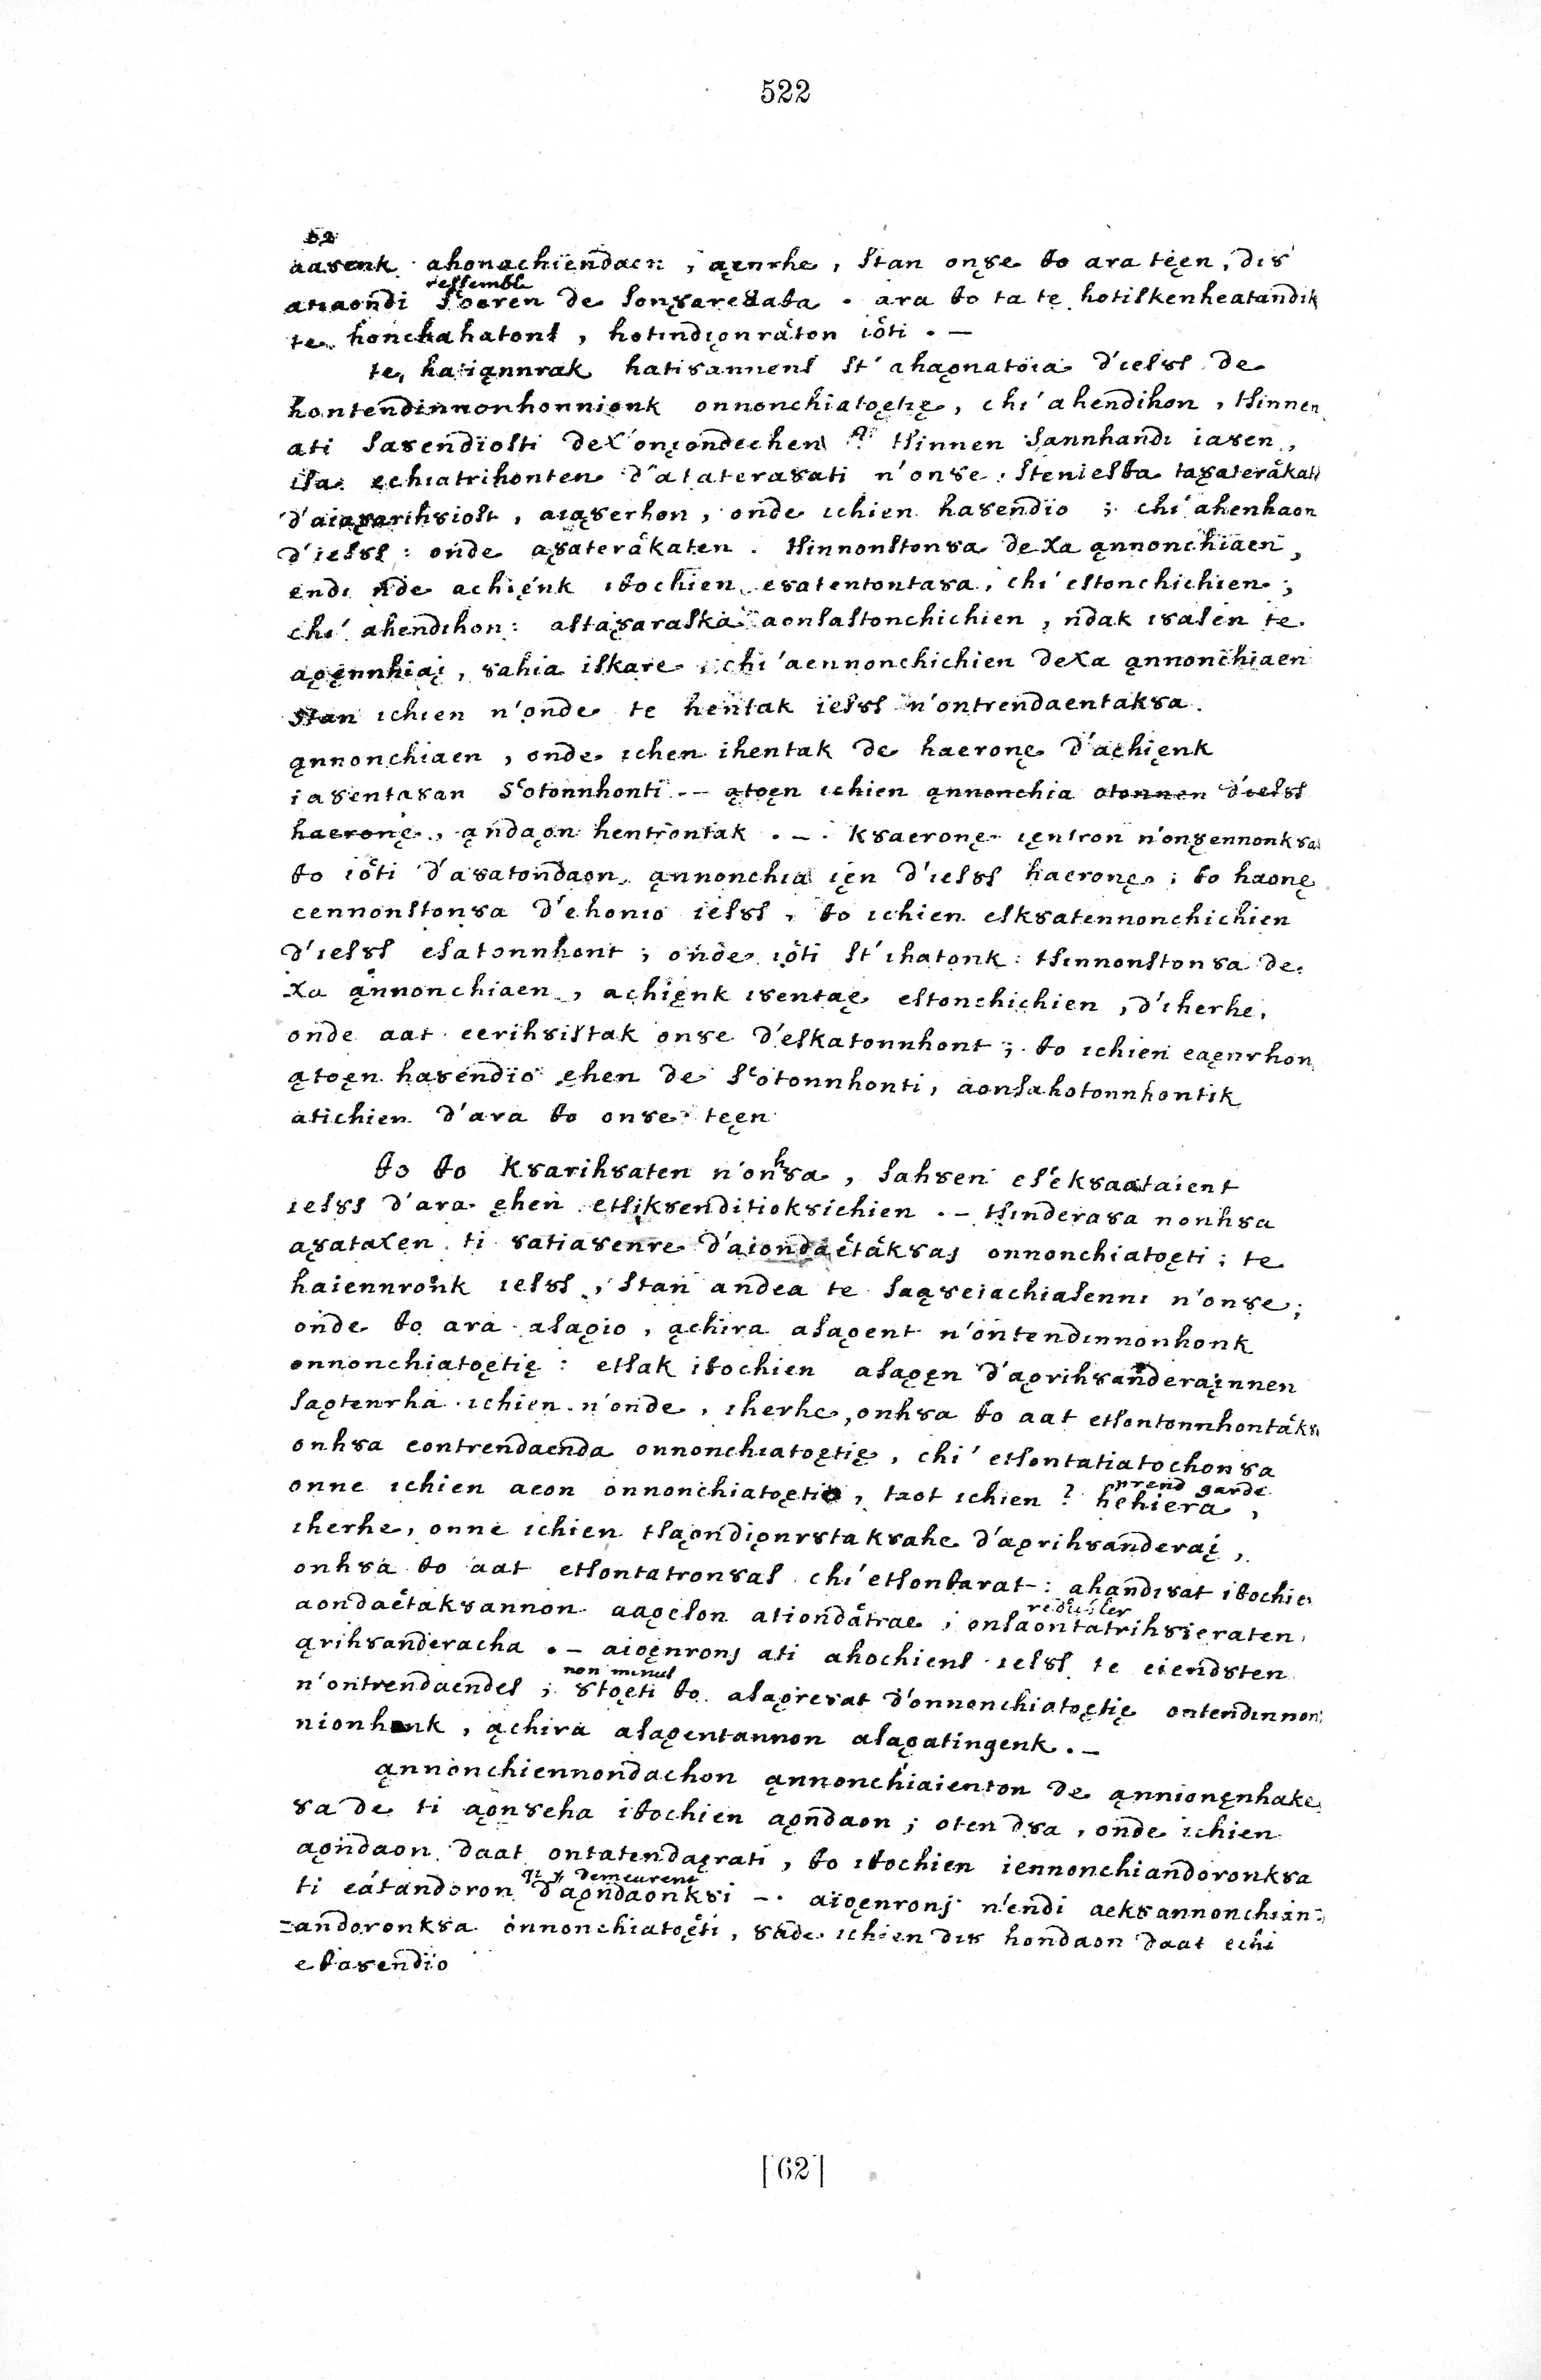 522
62
aaȣenk ahonachiendaen, ąenrhe, stan onȣe to ara tęen, diȣ
ressemble
atiaondi s'oeren de sonȣareȣata. ara to ta te hotiskenheatandik
te honchahatons, hotindionraton ioti. —
te, hatiąnnrak hatiȣannens st' ahaǫnatoia d'iesȣs de
hontendinnonhonnionk onnonchiatoętię, chi' ahendihon, tsinnen
ati saȣendiosti deχ'onįondechen? tsinnen sannhandi iaȣen,
isa echiatrihonten d'ataterasati n'onȣe. steniesta taȣaterâkati
d'aiaȣarihȣiost, aiąȣerhon, onde ichien haȣendio; chi' ahenhaon
d'iesȣs: onde aȣaterâkaten. tsinnonstonȣa deχa ąnnonchiaen,
endi nde achięnk itochien eȣatentontaȣa, chi' estonchichien;
chi' ahendihon: astaȣaraska aonsastonchichien, ndak iȣasen te
aǫęnnhiaį, ȣahia iskare chi' aennonchichien deχa ąnnonchiaen
stan ichien n'onde te hentak iesȣs n'ontrendaentakȣa
ąnnonchiaen, onde ichen ihentak de haeronę d'achięnk
iaȣentaȣan s'otonnhonti -- ątoęn ichien ąnnonchia otonnen d'iesȣs
haeronę, ąndaǫn hentrontak . — . Kȣaeronę ięntron n'onȣennonkȣa
to ioti d'aȣatondaon ąnnonchia ięn d'iesȣs haeronę; to haonę
eennonstonȣa d'ehonio iesȣs, to ichien eskȣatennonchichien
d'iesȣs esatonnhont; onde ioti st'ihatonk: tsinnonstonȣa de
χa ąnnonchiaen, achięnk iȣentaę estonchichien, d'iherhe,
onde aat eerihȣistak onȣe d'eskatonnhont; to ichien eaęnrhon
ątoęn haȣendio ehen de s'otonnhonti, aonsahotonnhontik
atichien d'ara to onȣe tęen
to to Kȣarihȣaten n'onhȣa, sahȣen es'ekȣaataient
iesȣs d'ara ęhen etsikȣenditiokȣichien . — tsinderaȣa nonhȣa
aȣataχen ti ȣatiaȣenre d'aiondaëtâkȣas onnonchiatoęti; te
haiennronk iesȣs, stan andea te saąȣeiachiasenni n'onȣe;
onde to ara asaǫio, ąchira asaǫent n'ontendinnonhonk
onnonchiatoętię: etsak itochien asaǫęn d'aǫrihȣanderaįnnen
saǫtenrha ichien n'onde, iherhe, onhȣa to aat etsontonnhontâkȣ
onhȣa eontrendaenda onnonchiatoętię, chi' etsontatiatochonȣa
prend garde
onne ichien aeon onnonchiatoętię, taot ichien? hehiera,
iherhe, onne ichien tsaǫndiǫnrȣtakȣahe d'aǫrihȣanderaį,
onhȣa to aat etsontatronȣas chi' etsontarat: ahandiȣat itochie
aondaëtakȣannon aaǫeson ationdâtrae; onsaontatrihȣieraten
ąrihȣanderacha . — aioęnrons ati ahochiens iesȣs te eiendȣten
non minus
n'ontrendaendes; ȣtoęti to asaǫreȣat d'onnonchiatoętię ontendinnon
nionhonk, ąchira asaǫentannon asaǫatingenk. —
ąnnonchiennondachon ąnnonchiaienton de ąnnionęnhake
ȣa de ti aǫnȣeha itochien aǫndaon; oten dȣa, onde ichien
aǫndaon daat ontatendaęrati, to itochien iennonchiandoronkȣa
qi y demeurent
ti eâtandoron d'aǫndaonkȣi — . aïoęnrons n'endi aekȣannonchian=
=andoronkȣa onnonchiatoęti, ȣade ichien diȣ hondaon daat echi
etaȣendio
[62]